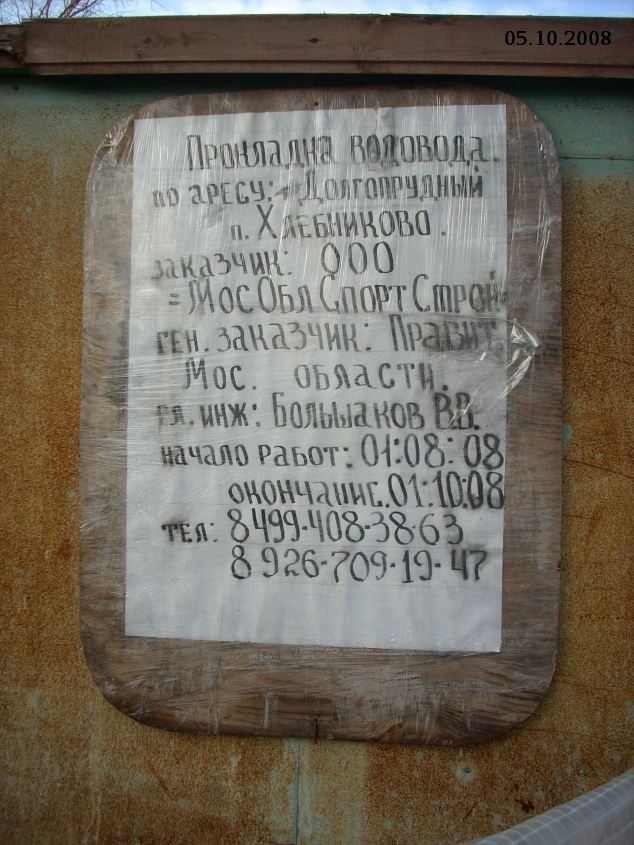 05.10.2008
Прокладка водовода.
по аресу: Долгопрудный
п. Хлебниково.
заказчик: ООО
=МосОблСпортСтрой
ген. заказчик: Правит.
Мос. области.
гл. инж: Большаков В.В.
начало работ: 01:08:08
окончание. 01:10:08
тел: 8 499-408-38-63
8 926-709-19-47